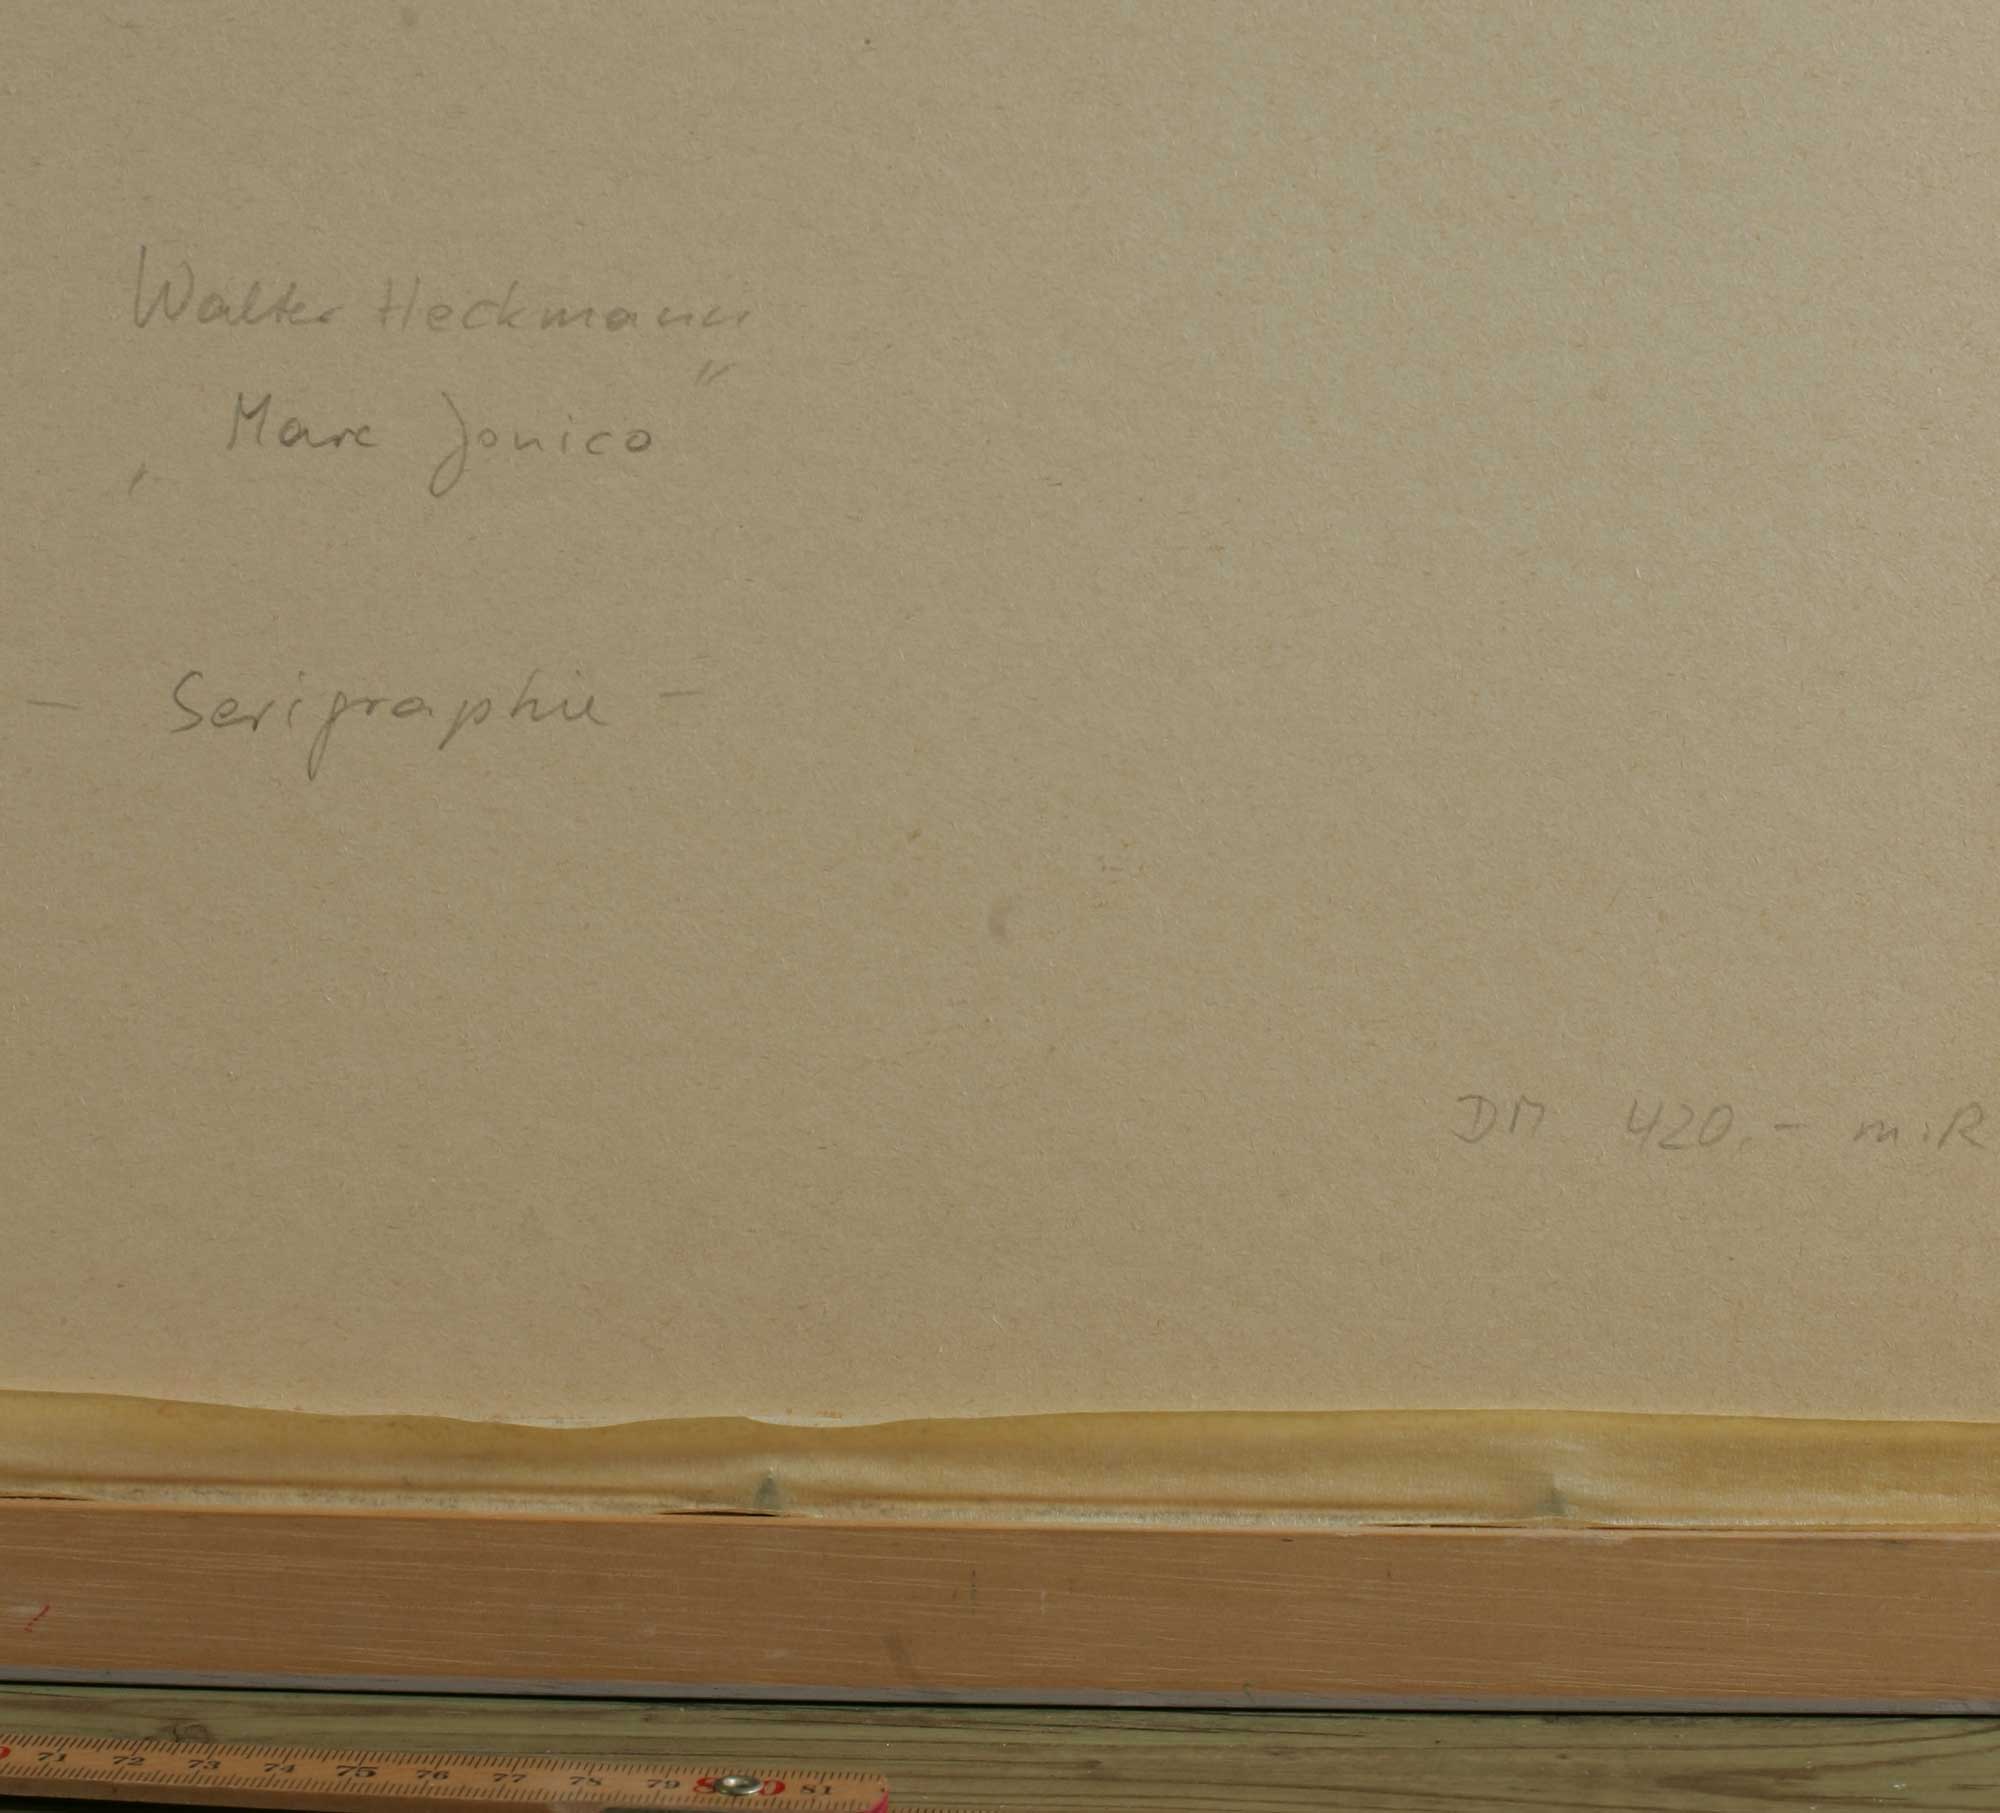 Walter Heckmann
„ Mare Jonico "
- Serigraphie -
DM 420,- m.R
71 72 73 74 75 76 77 78 79 80 81